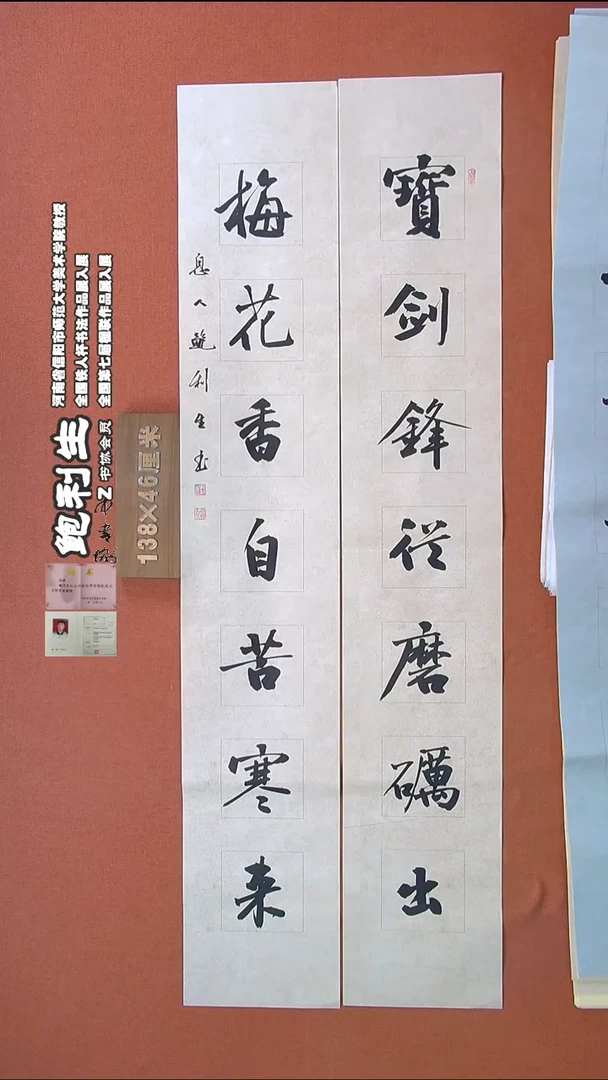 寶劍鋒從磨礪出
梅花香自苦寒来
息人鲍利生书
鲍利生
河南省信阳市师范大学美术学院教授
全国铁人杯书法作品展入展
全国第七届楹联作品展入展
书协会员
138×46厘米